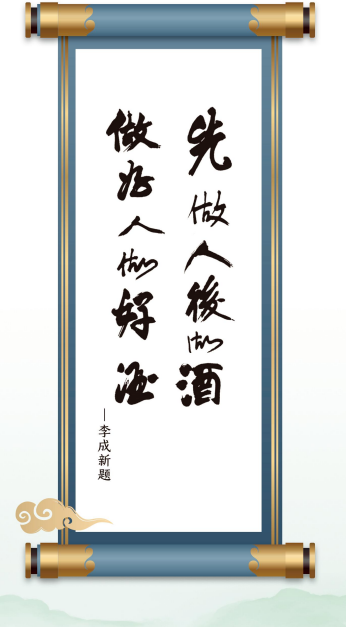 先做人後做酒
做好人做好酒
—李成新题